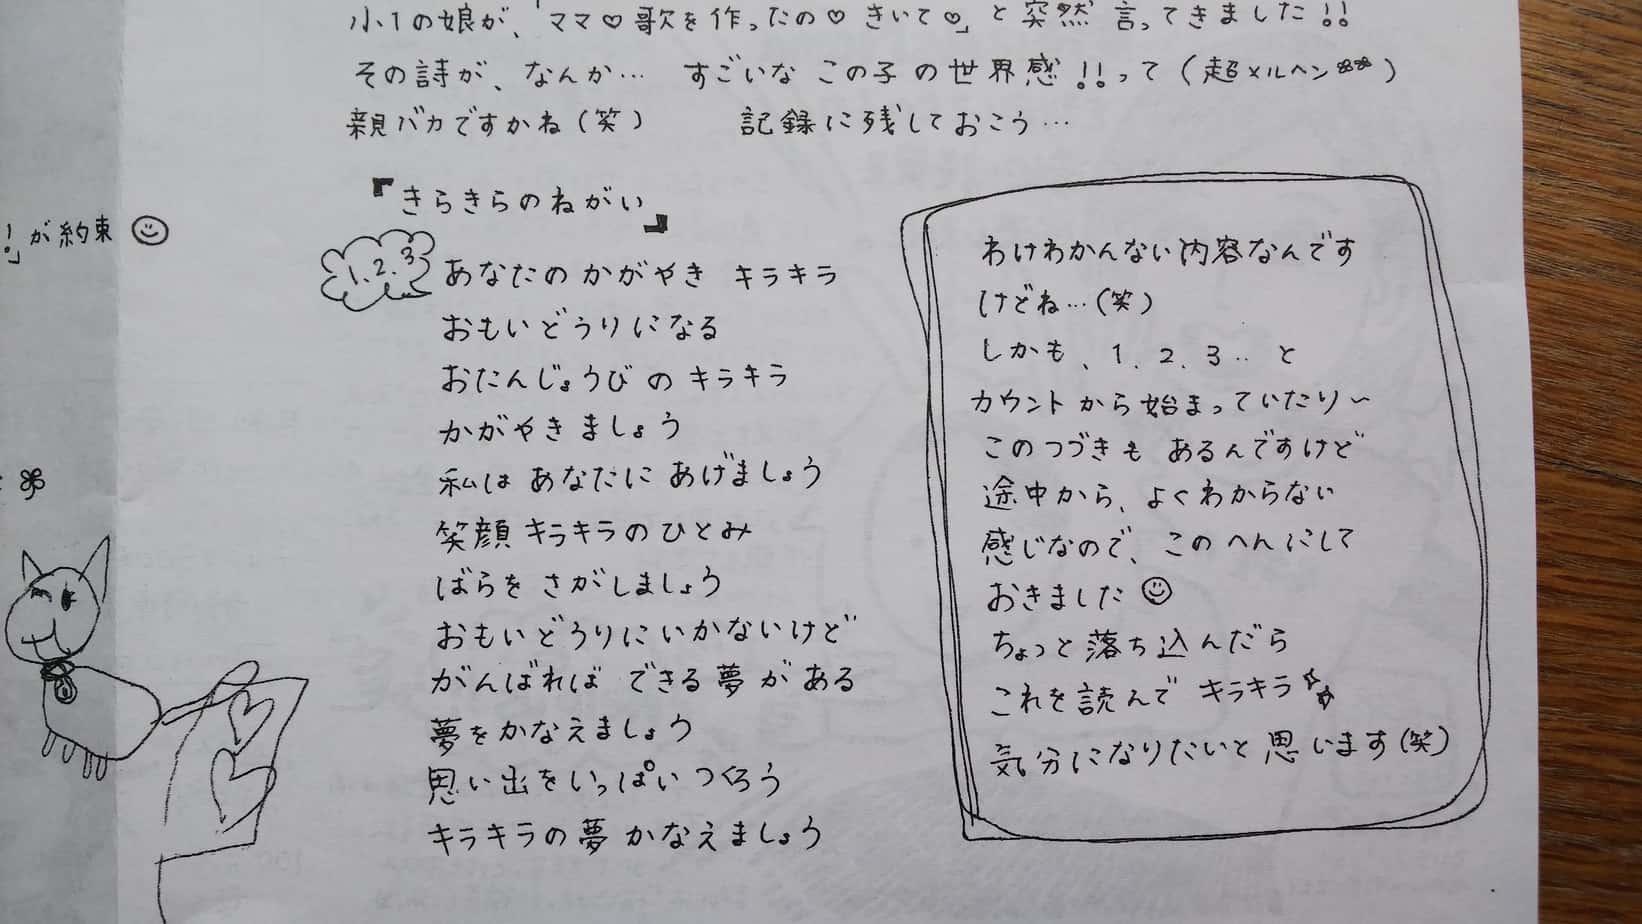 小1の娘が、「ママ♡歌を作ったの♡きいて♡」と突然 言ってきました!!
その詩が、なんか… すごいな この子の世界感!!って(超メルヘン✿✿)
親バカですかね(笑) 記録に残しておこう…
『きらきらのねがい』
1.2.3
あなたのかがやき キラキラ
おもいどうりになる
おたんじょうびの キラキラ
かがやきましょう
私は あなたに あげましょう
笑顔 キラキラのひとみ
ばらを さがしましょう
おもいどうりにいかないけど
がんばれば できる夢がある
夢をかなえましょう
思い出をいっぱいつくろう
キラキラの夢かなえましょう
わけわかんない内容なんです
けどね…(笑)
しかも、1.2.3‥と
カウントから始まっていたり〜
このつづきも あるんですけど
途中から、よくわからない
感じなので、このへんにして
おきました☺
ちょっと落ち込んだら
これを読んで キラキラ☆☆
気分になりたいと思います(笑)
!」が約束 ☺